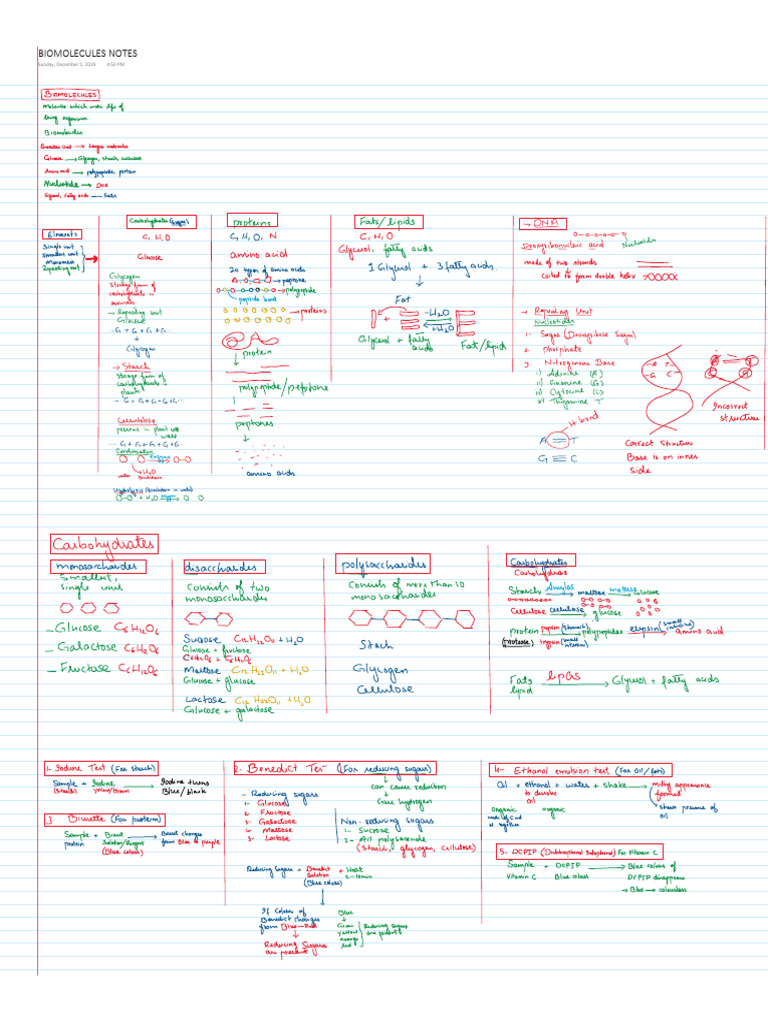 BIOMOLECULES NOTES
Sunday, December 1, 2024 4:53 PM
BIOMOLECULES
Molecules which make life of
living organisms
Biomolecules
Smaller Unit → Larger molecules
Glucose → Glycogen, starch, cellulose
Amino acid → polypeptide, protein
Nucleotide → DNA
Glycerol, Fatty acids — Fats
Elements
Simple unit
Smallest unit
Monomers
Repeating unit
Carbohydrates (sugar)
C, H, O
Glucose
Glycogen
Storage form of
carbohydrate in
→ Repeating unit
Glucose
-G + G + G + G-
Glycogen
→ Starch
Storage form of
carbohydrate in
plants
- G + G + G + G-
Cellulose
present in plant cell
walls
- G + G + G + G-
Condensation
H2O
proteins
C, H, O, N
amino acid
20 types of amino acids
A O C O → peptone
→ polypeptide
peptide bond
→ proteins
protein
polypeptide/peptone
peptones
amino acids
Fats/lipids
C, H, O
Glycerol, fatty acids
1 Glycerol + 3 fatty acids
Fat
-H2O
+H2O
Glycerol + fatty
acids
Fat/lipid
→ DNA
Deoxyribonucleic acid
Nucleotides
made of two strands
coiled to form double helix
→ Repeating Unit
Nucleotides
1- Sugar (Deoxyribose Sugar)
2- Phosphate
3. Nitrogenous Base
i) Adenine (A)
ii) Guanine (G)
iii) Cytosine (C)
iv) Thymine T
H bond
A = T
G ≡ C
A T
G C
Correct Structure
Base is on inner
side
Incorrect
structure
Carbohydrates
monosaccharides
Smallest,
single unit
- Glucose C6H12O6
- Galactose C6H12O6
- Fructose C6H12O6
disaccharides
Consists of two
monosaccharides
Sucrose C12H22O11 + H2O
Glucose + fructose
C6H12O6 + C6H12O6
Maltose C12H22O11 + H2O
Glucose + glucose
Lactose C12H22O11 + H2O
Glucose + galactose
polysaccharides
Consists of more than 10
monosaccharides
Stach
Glycogen
Cellulose
Carbohydrates
Carbohydrase
Starch Amylas → maltose maltase → glucose
Cellulose cellulase → glucose
protein pepsin (stomach) → polypeptides erepsin (small intestine) → amino acid
(Protease) trypsin (small intestine)
Fats lipas → Glycerol + fatty acids
lipid
1- Iodine Test (For starch)
Sample + Iodine → Iodine turns
(Starch) yellow/Brown Blue/black
3. Biurette (For protein)
Sample + Biuret → Biuret changes
protein Solution/Reagent from Blue to purple
(Blue colour)
2- Benedict Test (For reducing sugars)
can cause reduction
Gain hydrogen
- Reducing sugars
1- Glucose
2- Fructose
3- Galactose
4- Maltose
5- Lactose
Non-reducing sugars
1- Sucrose
2- All polysaccharide
(starch, glycogen, cellulose)
Reducing sugars + Benedict + Heat
Solution
(Blue colour)
If Colour of
Benedict changes
from Blue → Red
Reducing Sugars
are present
Blue
Green
Yellow
orange
Red
Reducing sugars
are present
4- Ethanol emulsion test (For Oil/fats)
Oil + ethanol + water + shake → milky appearance
to dissolve formed
Oil
organic organic
→ shows presence of
oil
5- DCPIP (Dichlorophenol Indophenol) For Vitamin C
Sample + DCPIP → Blue colour of
Vitamin C Blue colour DCPIP disappears
→ Blue → colourless